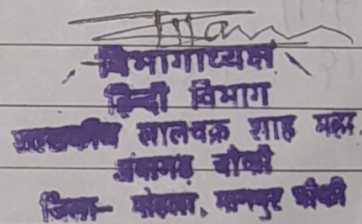 विभागाध्यक्ष
हिन्दी विभाग
शासकीय लालचक्र शाह महा
अंबागढ़ चौकी
जिला- मोहला, मानपुर चौकी